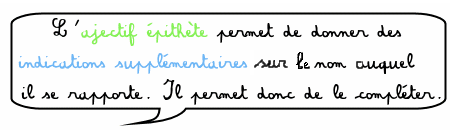 L'ajectif épithète permet de donner des
indications supplémentaires sur le nom auquel
il se rapporte. Il permet donc de le compléter.